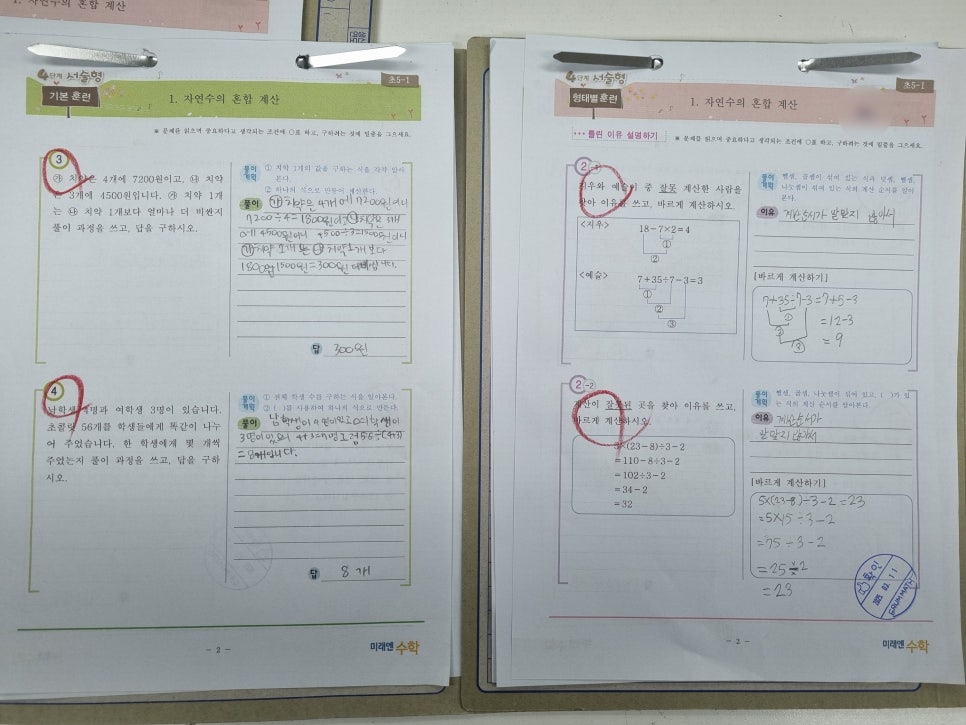 1. 자연수의 혼합 계산
4단계 서술형
기본 훈련
초5-1
1. 자연수의 혼합 계산
※ 문제를 읽으며 중요하다고 생각되는 조건에 ○표 하고, 구하려는 것에 밑줄을 그으세요.
3
㉮ 치약은 4개에 7200원이고, ㉯ 치약
은 3개에 4500원입니다. ㉮ 치약 1개
는 ㉯ 치약 1개보다 얼마나 더 비싼지
풀이 과정을 쓰고, 답을 구하시오.
풀이 계획
① 치약 1개의 값을 구하는 식을 각각 알아
본다.
② 하나의 식으로 만들어 계산한다.
풀이
㉮ 치약은 4개에 7200원이니
7200÷4=1800원이고 ㉯치약은 3개
에 4500원이니 4500÷3=1500원이니
㉮치약 1개는 ㉯치약 1개보다
1800원 1500원=300원 더 비쌉니다.
답 300원
4
남학생 4명과 여학생 3명이 있습니다.
초콜릿 56개를 학생들에게 똑같이 나누
어 주었습니다. 한 학생에게 몇 개씩
주었는지 풀이 과정을 쓰고, 답을 구하
시오.
풀이 계획
① 전체 학생 수를 구하는 식을 알아본다.
② ( )를 사용하여 하나의 식으로 만든다.
풀이
남학생이 4명이고 여학생이
3명이 있으니 4+3=7명 56÷(4+3)
=8개입니다.
답 8개
- 2 -
미래엔 수학
4단계 서술형
형태별 훈련
초5-1
1. 자연수의 혼합 계산
틀린 이유 설명하기
※ 문제를 읽으며 중요하다고 생각되는 조건에 ○표 하고, 구하려는 것에 밑줄을 그으세요.
2-1
지우와 예슬이 중 잘못 계산한 사람을
찾아 이유를 쓰고, 바르게 계산하시오.
<지우>
18-7×2=4
①
②
<예슬>
7+35÷7-3=3
①
②
③
풀이 계획
뺄셈, 곱셈이 섞여 있는 식과 덧셈, 뺄셈,
나눗셈이 섞여 있는 식의 계산 순서를 알아
본다.
이유 계산순서가 알맞지 않아서
[바르게 계산하기]
7+35÷7-3=7+5-3
①
②
③
=12-3
=9
2-2
계산이 잘못된 곳을 찾아 이유를 쓰고,
바르게 계산하시오.
5×(23-8)÷3-2
=110-8÷3-2
=102÷3-2
=34-2
=32
풀이 계획
뺄셈, 곱셈, 나눗셈이 섞여 있고, ( )가 있
는 식의 계산 순서를 알아본다.
이유 계산순서가
알맞지 않아서
[바르게 계산하기]
5×(23-8)÷3-2=23
=5×15÷3-2
=75÷3-2
=25-2
=23
확인
2025 02 11
- 2 -
미래엔 수학